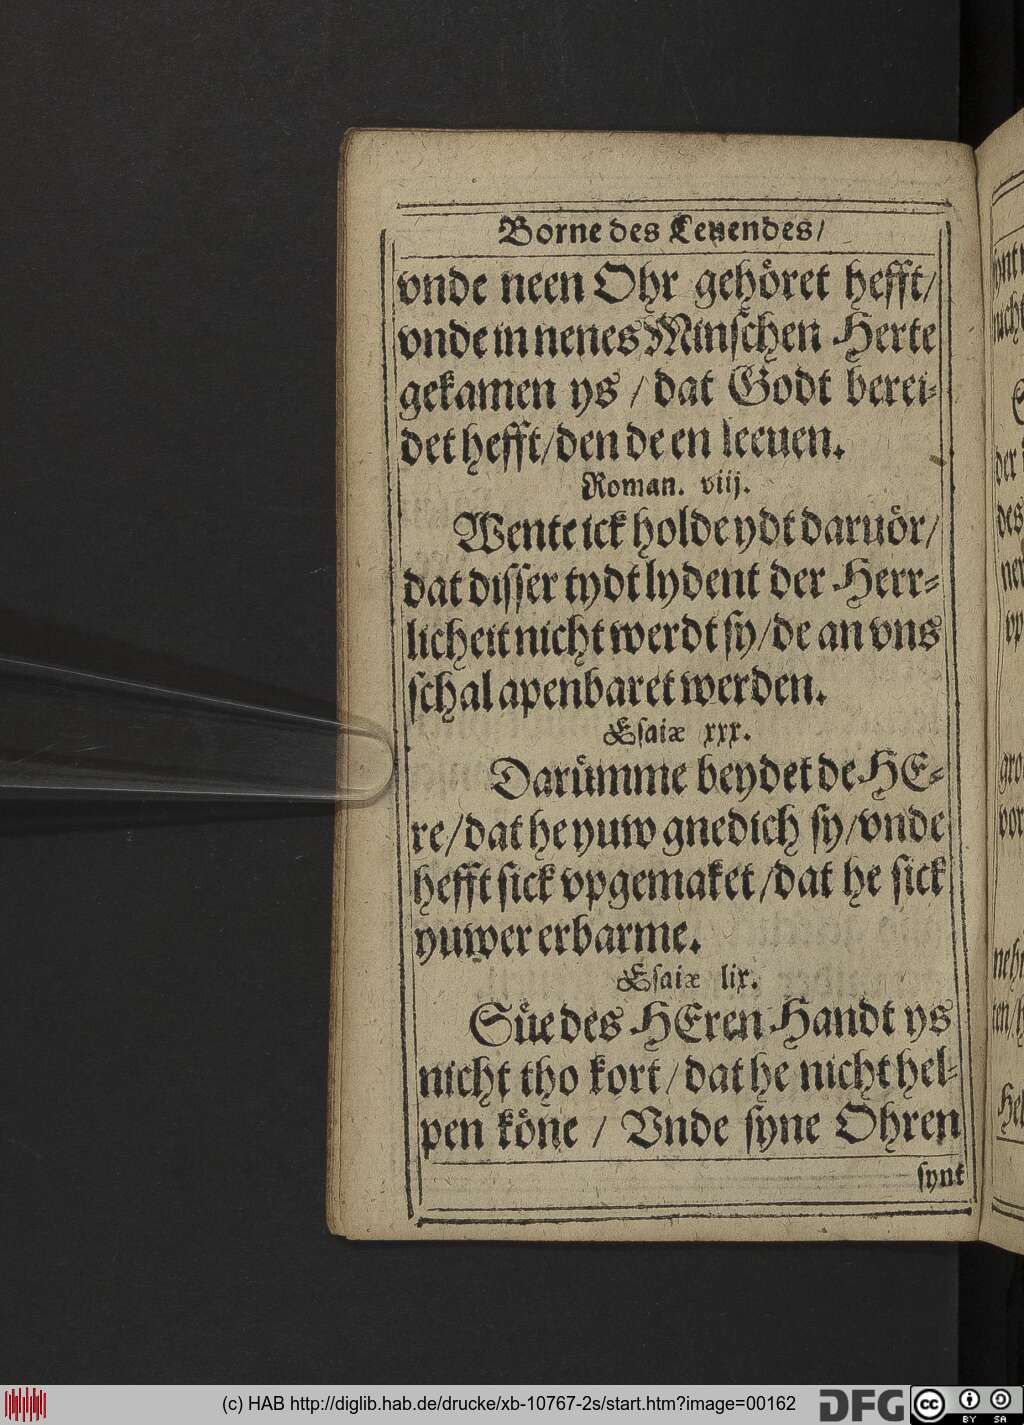 Borne des Leuendes/
vnde neen Ohr gehoͤret hefft/
vnde in nenes Minſchen Herte
gekamen ys / dat Godt berei-
det hefft/ den de en leeuen.
Roman. viij.
Wente ick holde ydt daruoͤr/
dat diſſer tydt lydent der Herr-
licheit nicht werdt ſy/ de an vns
ſchal apenbaret werden.
Eſaiæ xxx.
Daruͤmme beydet de HE-
re/ dat he yuw gnedich ſy/ vnde
hefft ſick vpgemaket/ dat he ſick
yuwer erbarme.
Eſaiæ lix.
Suͤe des HEren Handt ys
nicht tho kort/ dat he nicht hel-
pen koͤne / Vnde ſyne Ohren
ſynt
(c) HAB http://diglib.hab.de/drucke/xb-10767-2s/start.htm?image=00162
DFG
cc
BY SA